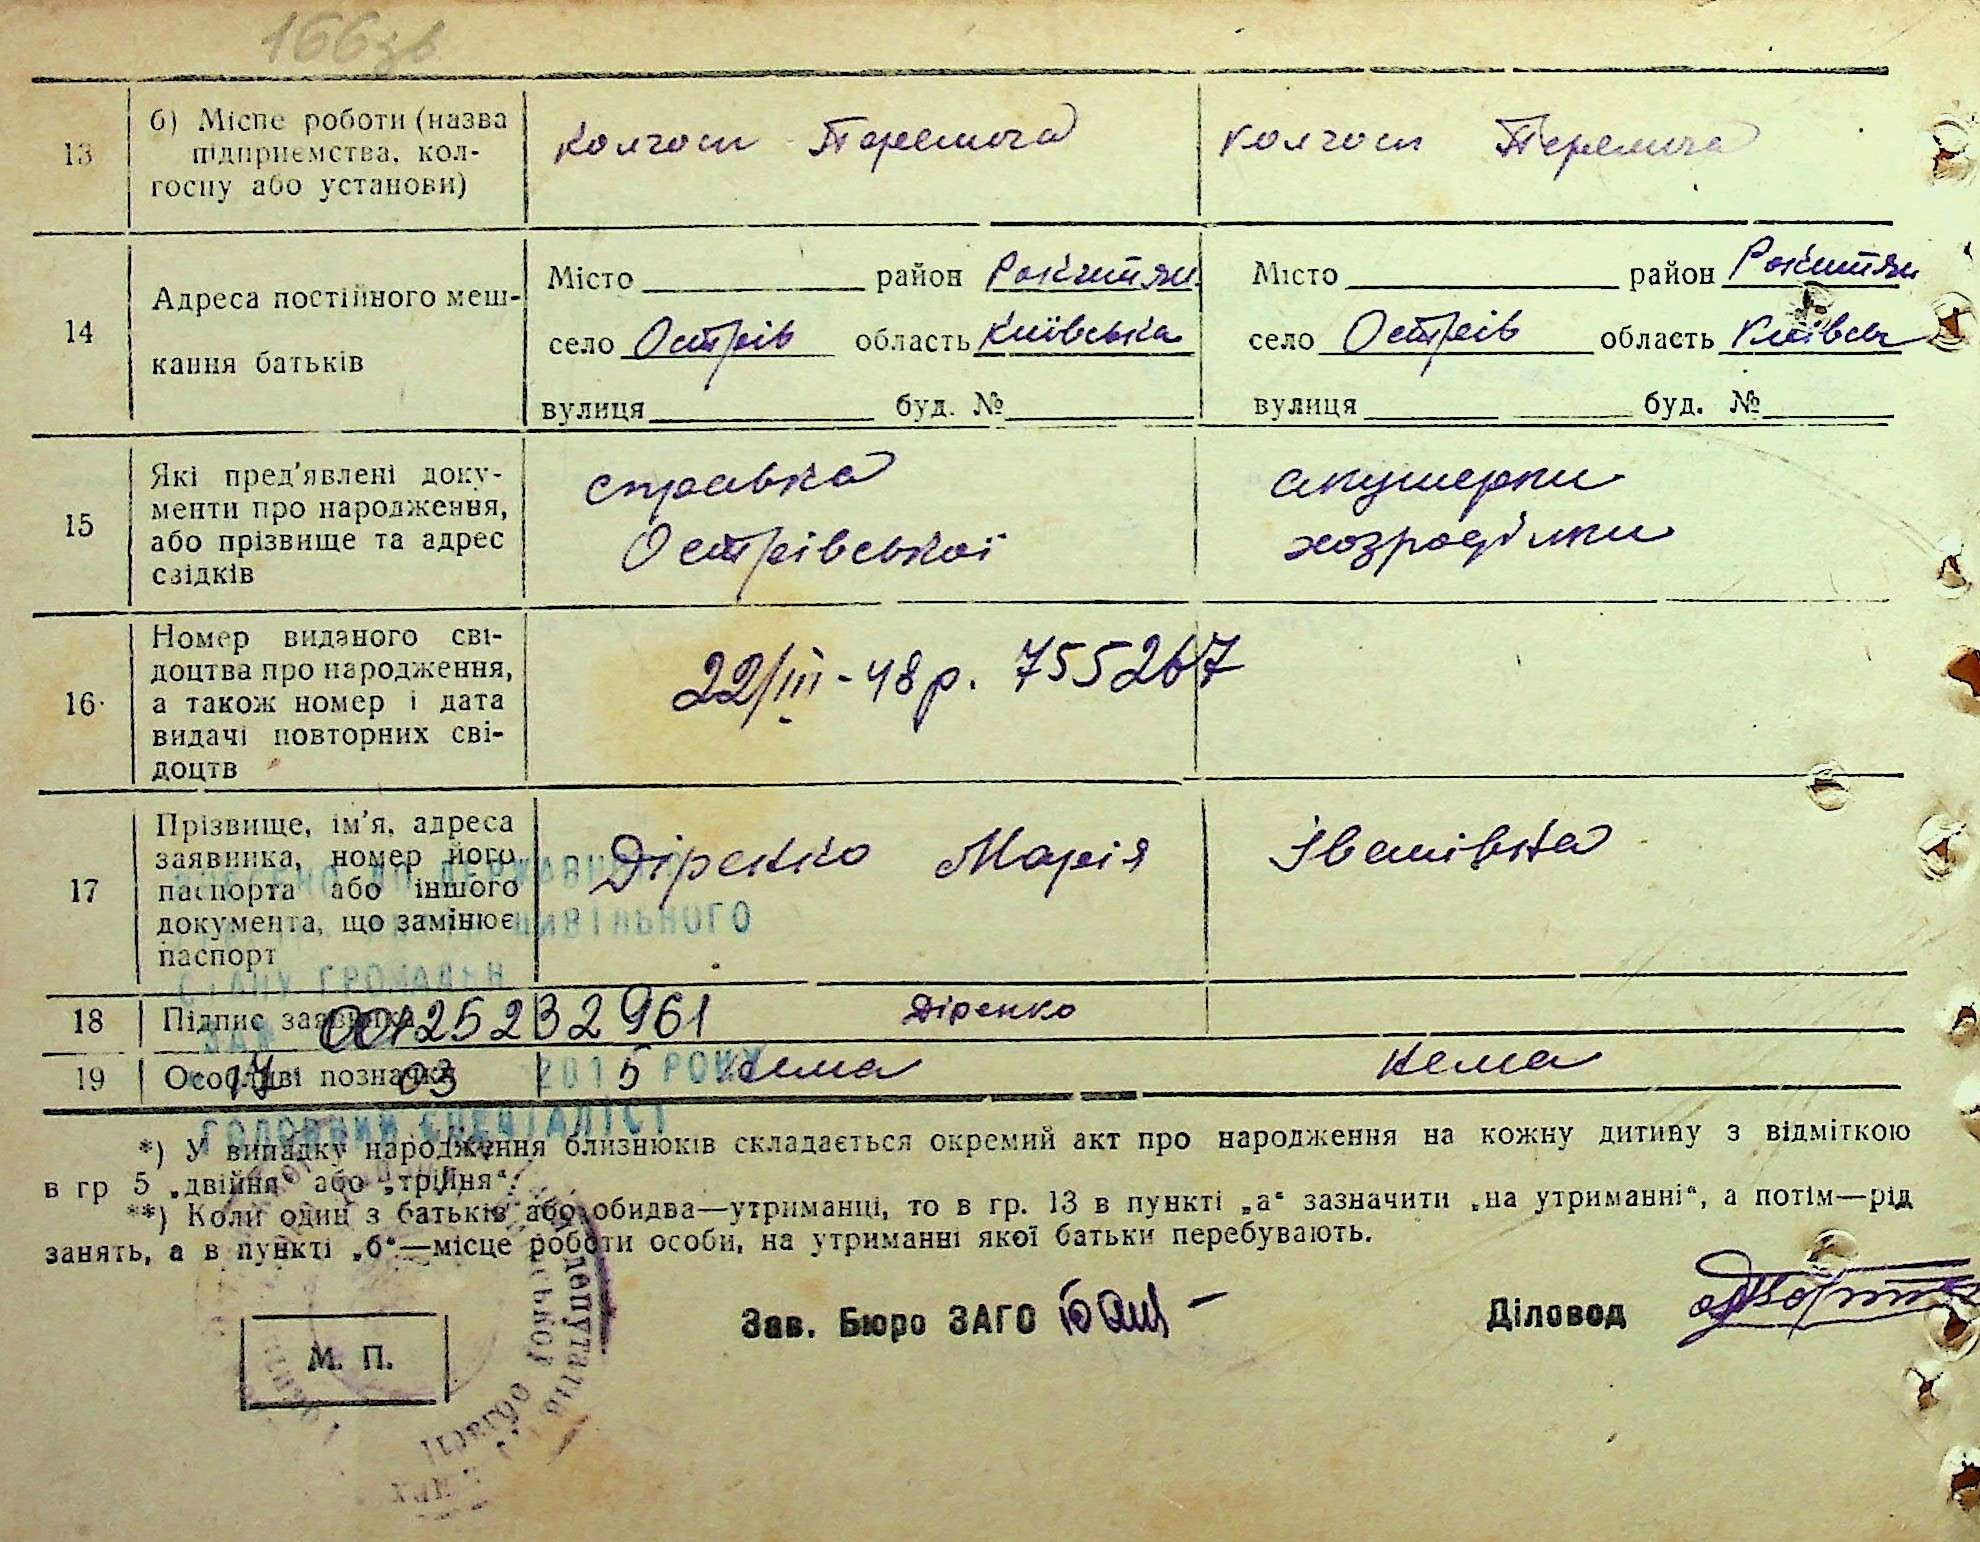 166зв
13
б) Місце роботи (назва
підприємства, кол-
госпу або установи)
колгосп Перемога
колгосп Перемога
14
Адреса постійного меш-
кання батьків
Місто район Рокитян.
село Острів область Київська
вулиця буд. №
Місто район Рокитян
село Острів область Київсь
вулиця буд. №
15
Які пред'явлені доку-
менти про народження,
або прізвище та адрес
свідків
справка
Острівської
акушерки
16
Номер виданого сві-
доцтва про народження,
а також номер і дата
видачі повторних сві-
доцтв
22/III-48 р. 755267
17
Прізвище, ім'я, адреса
заявника, номер його
паспорта або іншого
документа, що замінює
паспорт
Діренко Марія Іванівна
ДЕРЖАВНОГО
ЦИВІЛЬНОГО
СТАНУ ГРОМАДЯН
18
Підпис заявника
00125232961
Діренко
19
Особливі позначки
17 03 2015 РОКУ
нема
нема
ГОЛОВНИЙ СПЕЦІАЛІСТ
*) У випадку народження близнюків складається окремий акт про народження на кожну дитину з відміткою
в гр 5 „двійня" або „трійня".
**) Коли один з батьків або обидва—утриманці, то в гр. 13 в пункті „а" зазначити „на утриманні", а потім—рід
занять, а в пункті „б"—місце роботи особи, на утриманні якої батьки перебувають.
М. П.
депутатів
області
Зав. Бюро ЗАГС
Діловод